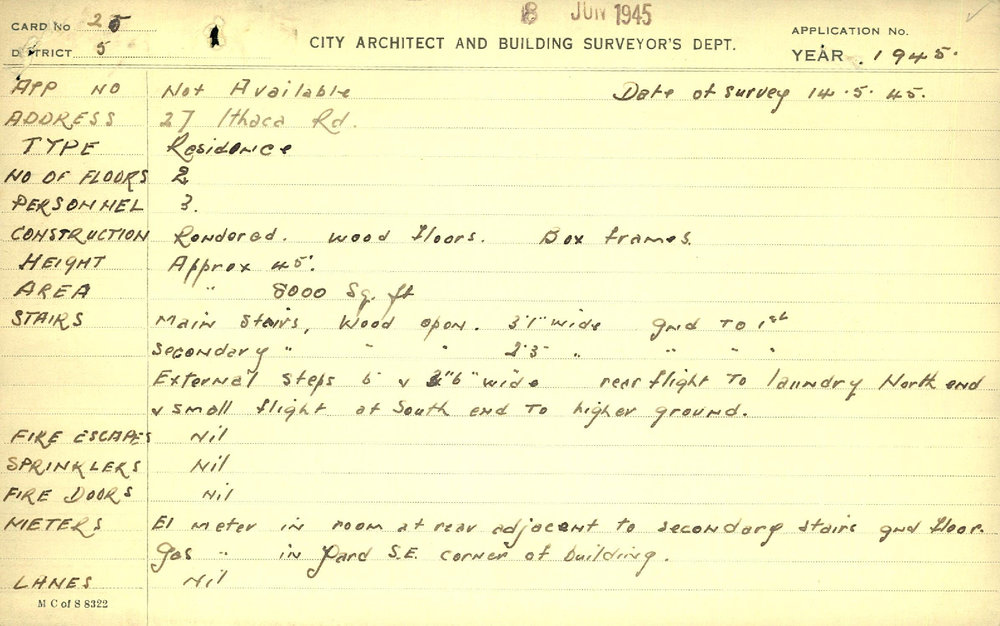 CARD No 25
8 JUN 1945
APPLICATION No.
DISTRICT 5
CITY ARCHITECT AND BUILDING SURVEYOR'S DEPT.
YEAR . 1945.
APP NO Not Available Date of survey 14.5.45.
ADDRESS 27 Ithaca Rd.
TYPE Residence
NO OF FLOORS 2
PERSONNEL 3.
CONSTRUCTION Rendered. Wood floors. Box frames.
HEIGHT Approx 45'.
AREA " 8000 Sq. ft
STAIRS Main Stairs, Wood open. 3'1" wide gnd To 1st
Secondary " " " 2'3" " " " "
External Steps 6' & "6" wide rear flight To laundry North end
& small flight at South end To higher ground.
FIRE ESCAPES Nil
SPRINKLERS Nil
FIRE DOORS Nil
METERS El meter in room at rear adjacent to secondary stairs gnd floor.
Gas " in Yard S.E. corner of building.
LANES Nil
M C of S 8322